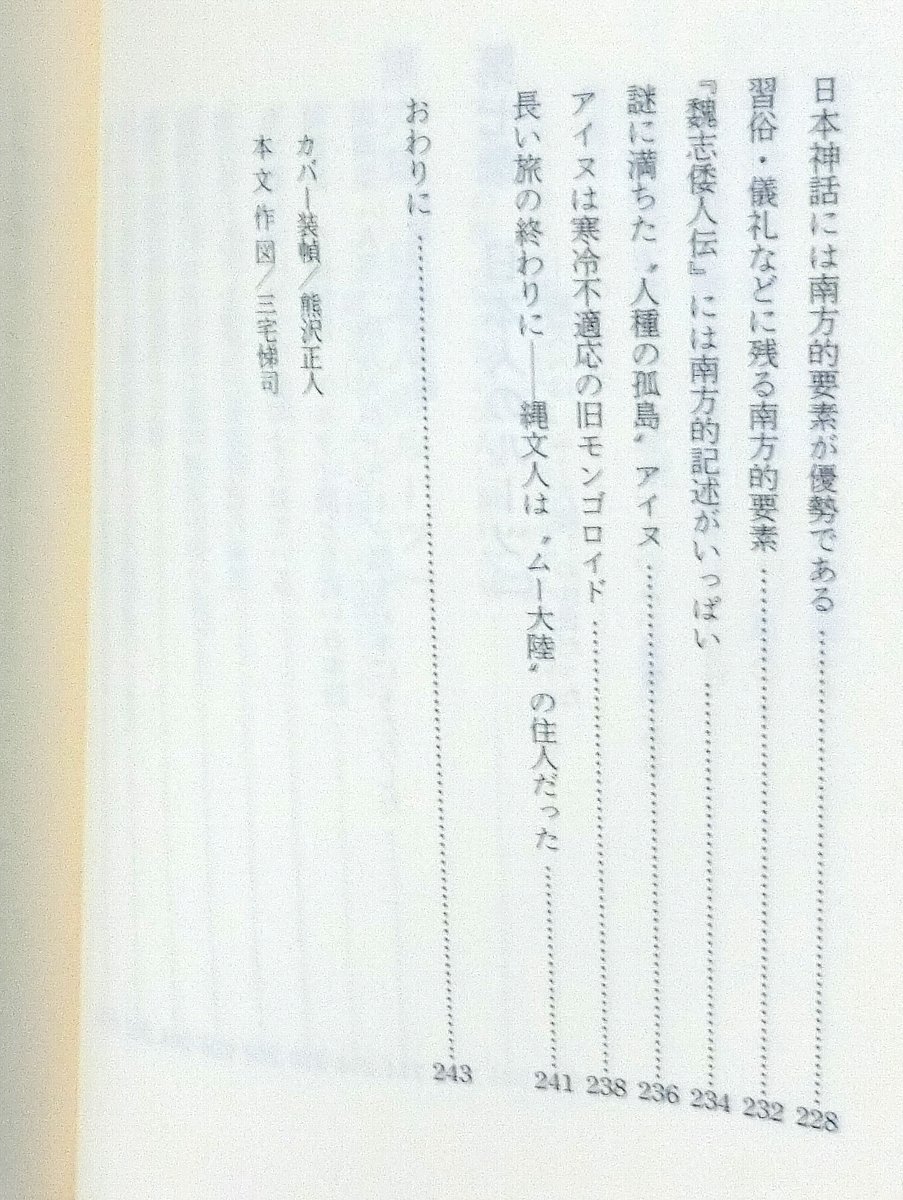 日本神話には南方的要素が優勢である……228
習俗・儀礼などに残る南方的要素……232
『魏志倭人伝』には南方的記述がいっぱい……234
謎に満ちた〝人種の孤島〟アイヌ……236
アイヌは寒冷不適応の旧モンゴロイド……238
長い旅の終わりに――縄文人は〝ムー大陸〟の住人だった……241
おわりに……243
カバー装幀/熊沢正人
本文作図/三宅悌司